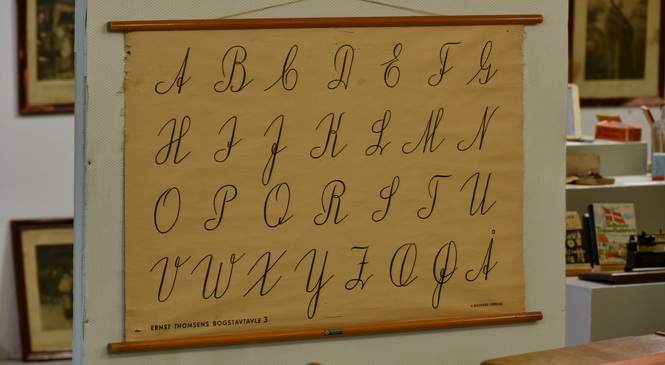 A B C D E F G
H I J K L M N
O P Q R S T U
V W X Y Z Æ Ø Å
ERNST THOMSENS BOGSTAVTAVLE 3